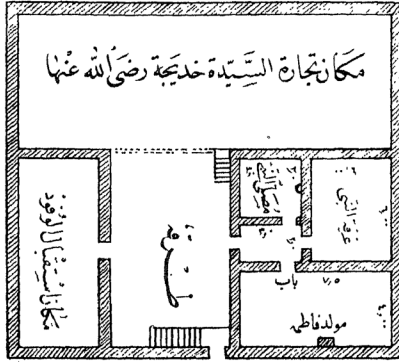 مَكَان تجَارة السَّيِّدة خَديجَة رضَى الله عَنْها
مَكان اسْتِقْبَال الوُفُود
طرقه
مُصَلَّى النَّبِى
غرفة النَّبى
باب
٧,٥
مولد فاطمه
٤,٠٠